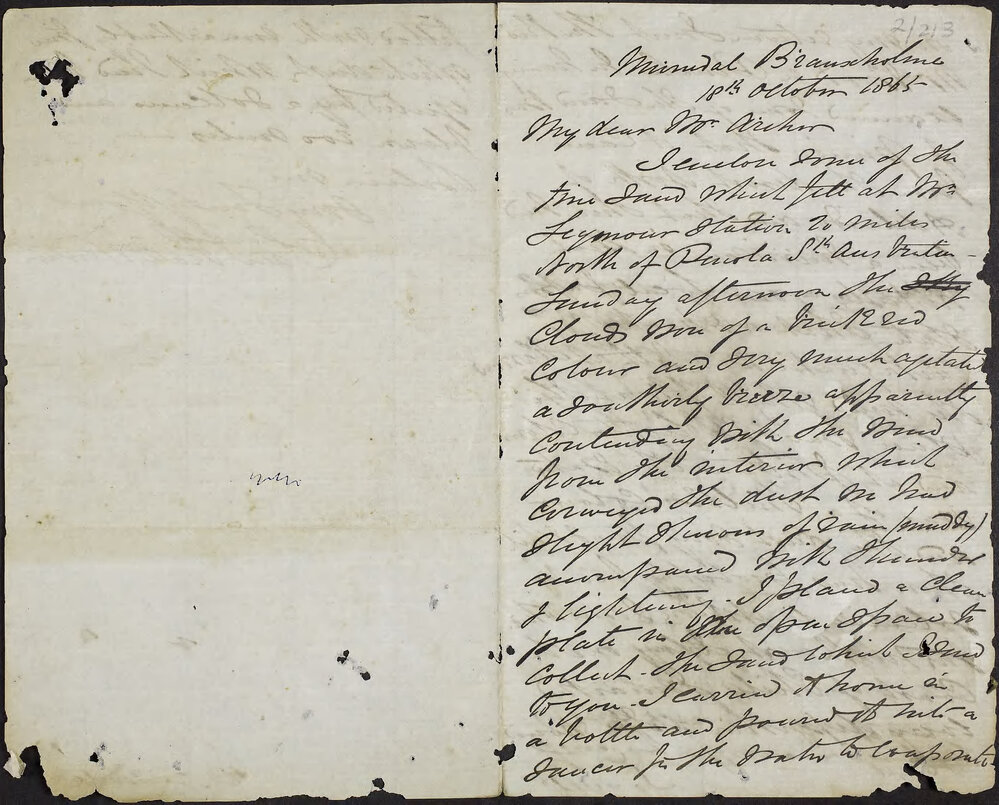 2/213
Mirndal Branxholme
18th October 1865
My dear Mr Archer
I enclose some of the
fine sand which fell at Mr
Seymour Station 20 miles
North of Penola Sth Australia
Sunday afternoon the sky
Clouds were of a brick red
Colour and very much agitated
a Southerly breeze apparently
Contending with the Wind
from the interior which
Conveyed the dust We had
slight showers of rain (muddy)
accompanied with thunder
& lightning. I placed a clean
plate in the open space to
collect the sand which I send
to you. I carried it home in
a bottle and poured it into a
saucer for the water to evaporate